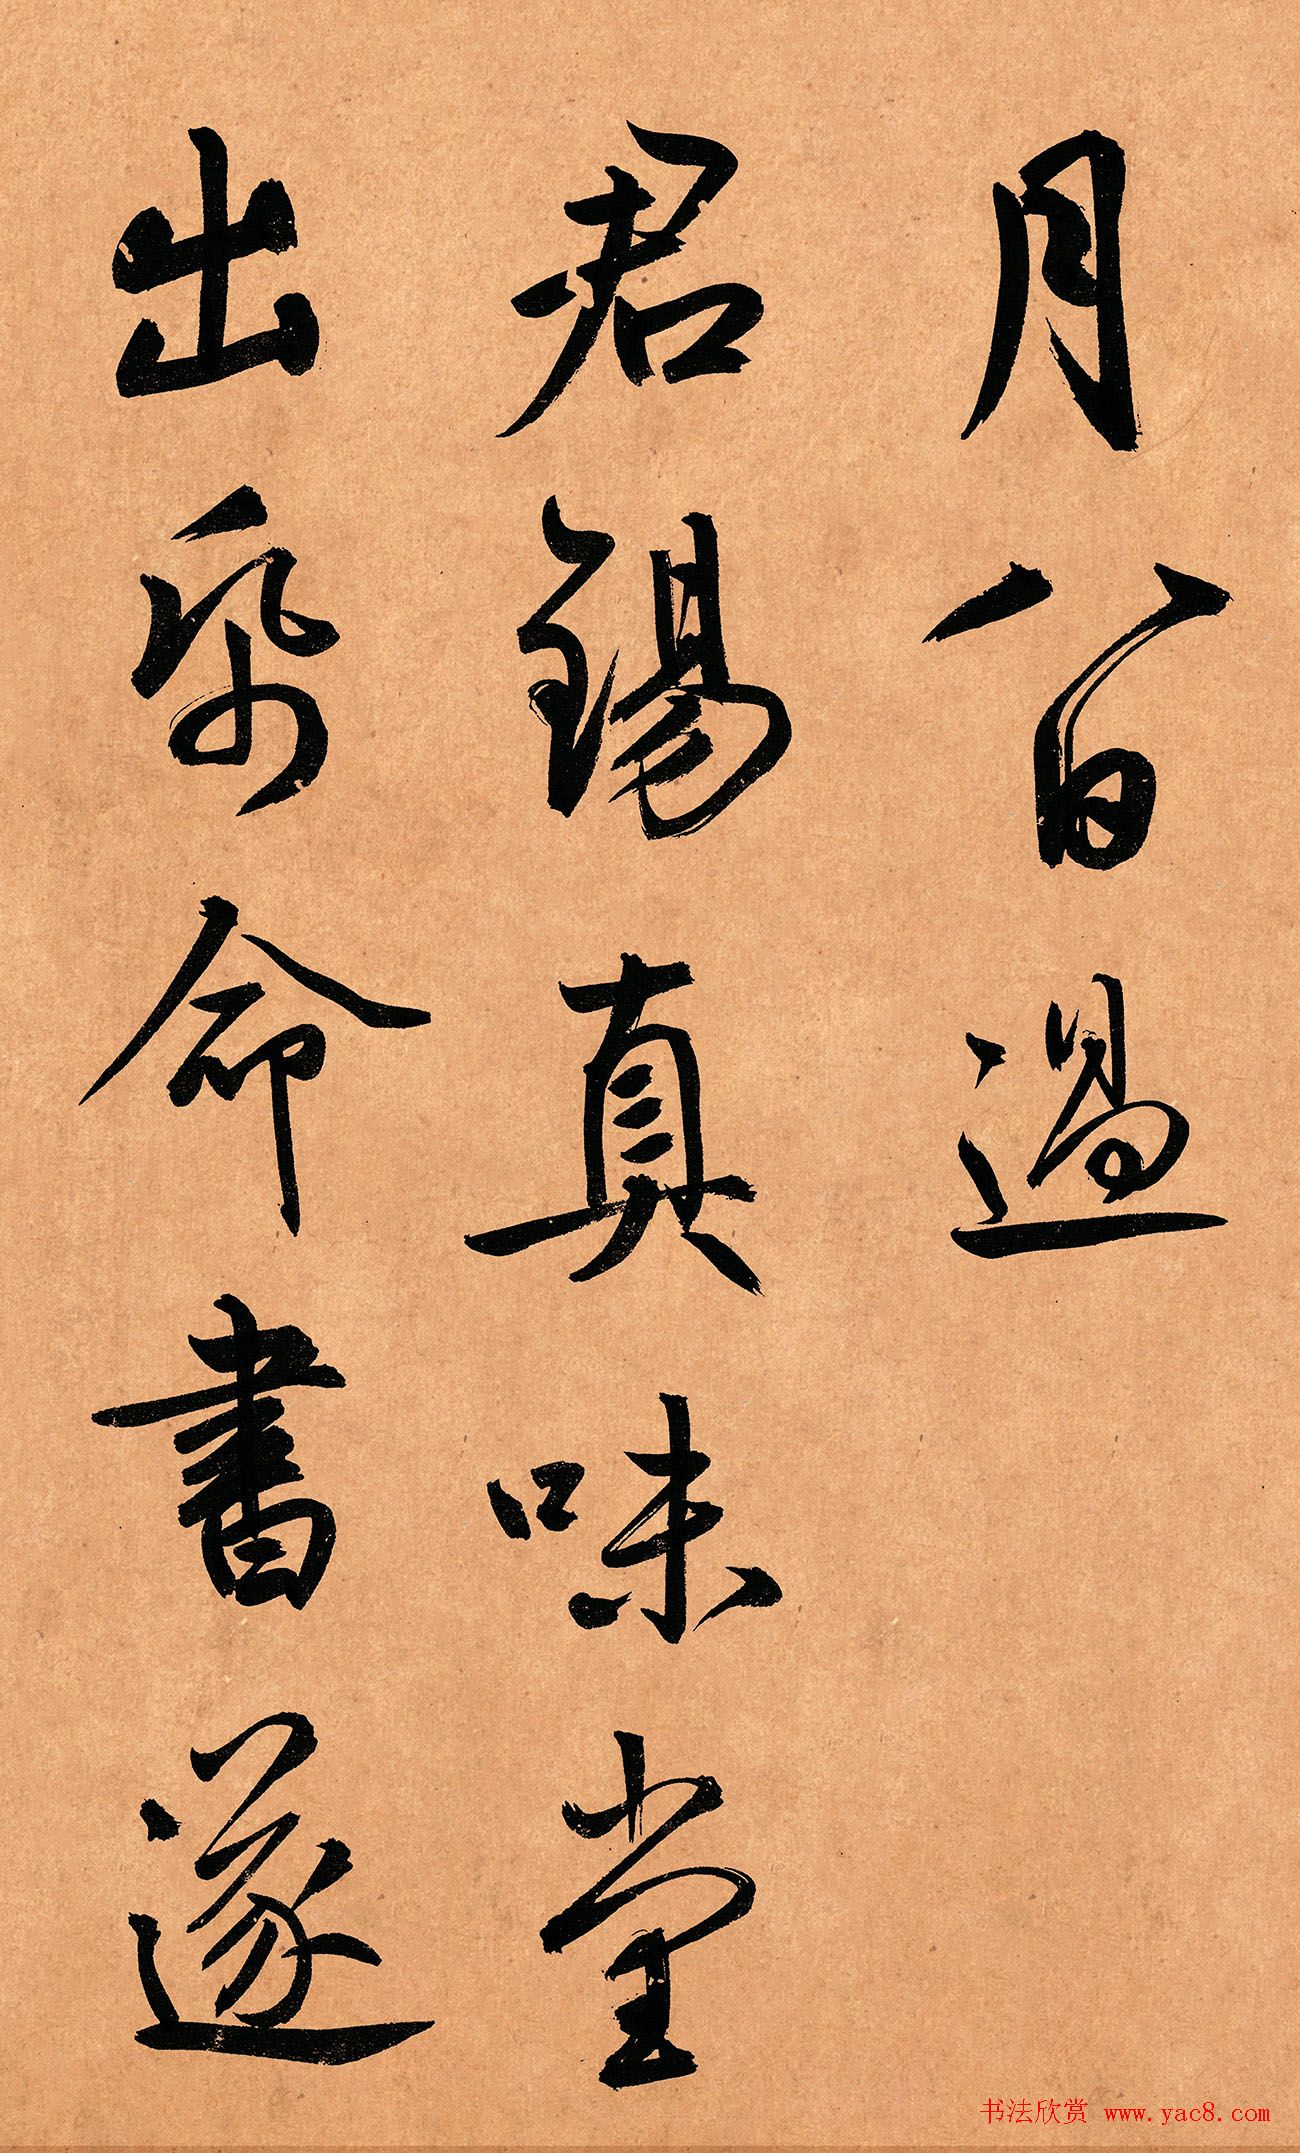 月八日過
君錫真味堂
出帋命書遂
书法欣赏 www.yac8.com